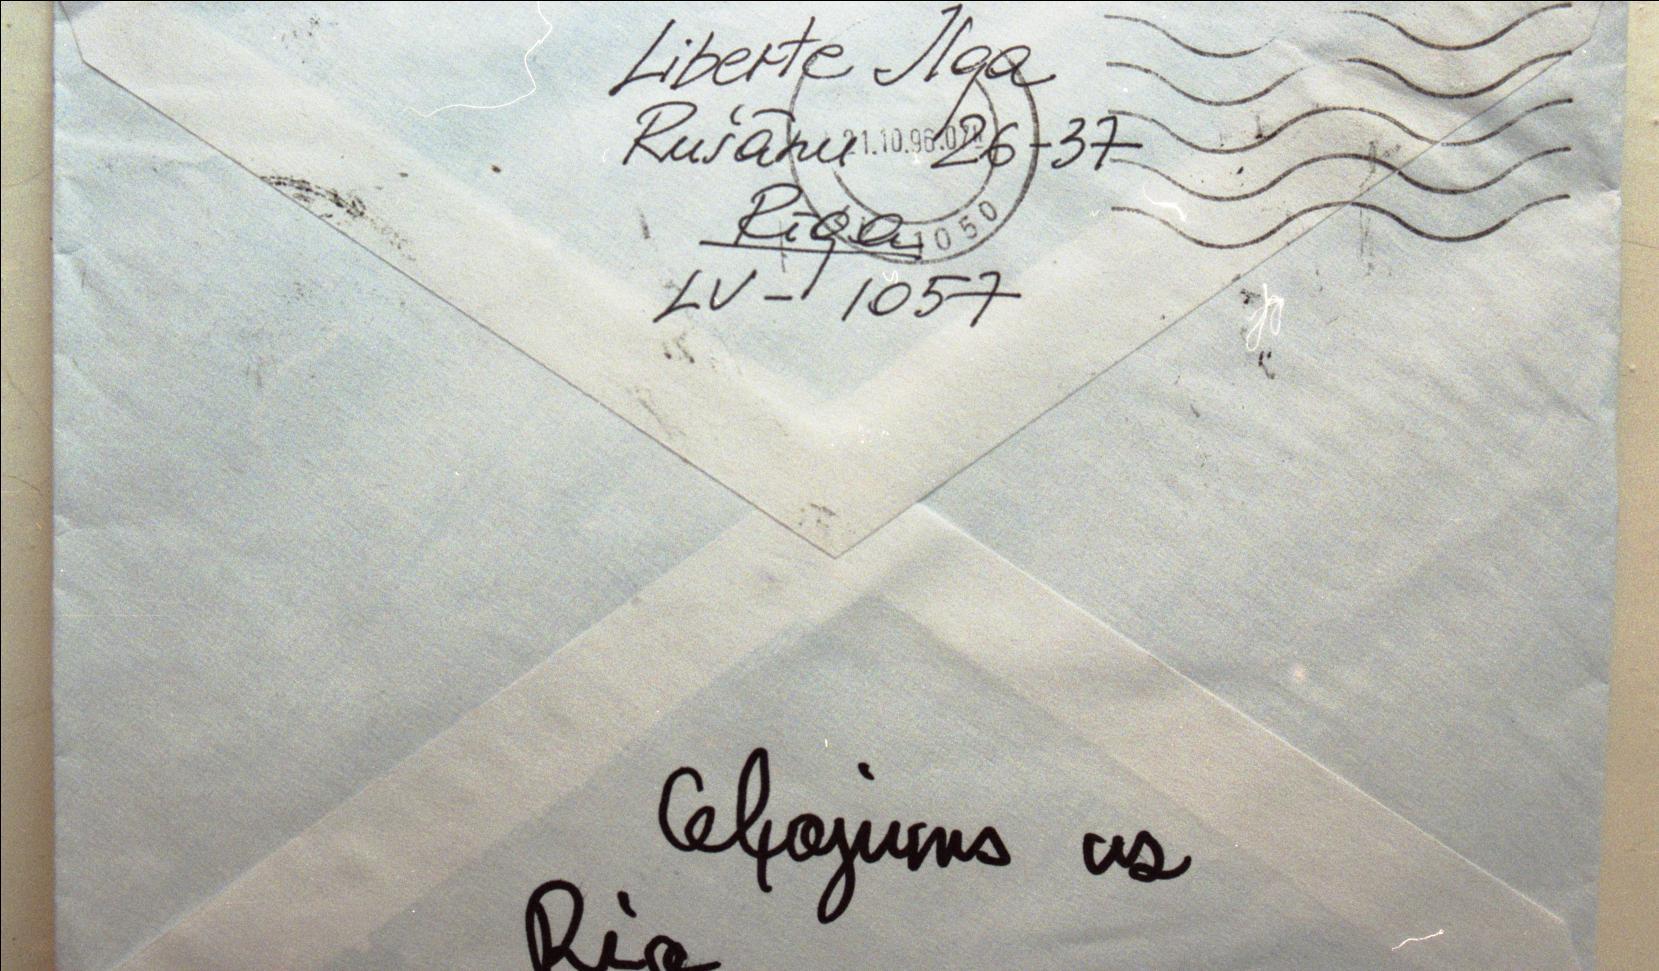 Liberte Ilga
Rušānu 26-37
21.10.96.07
Rīga
1050
LV- 1057
Ceļojums us